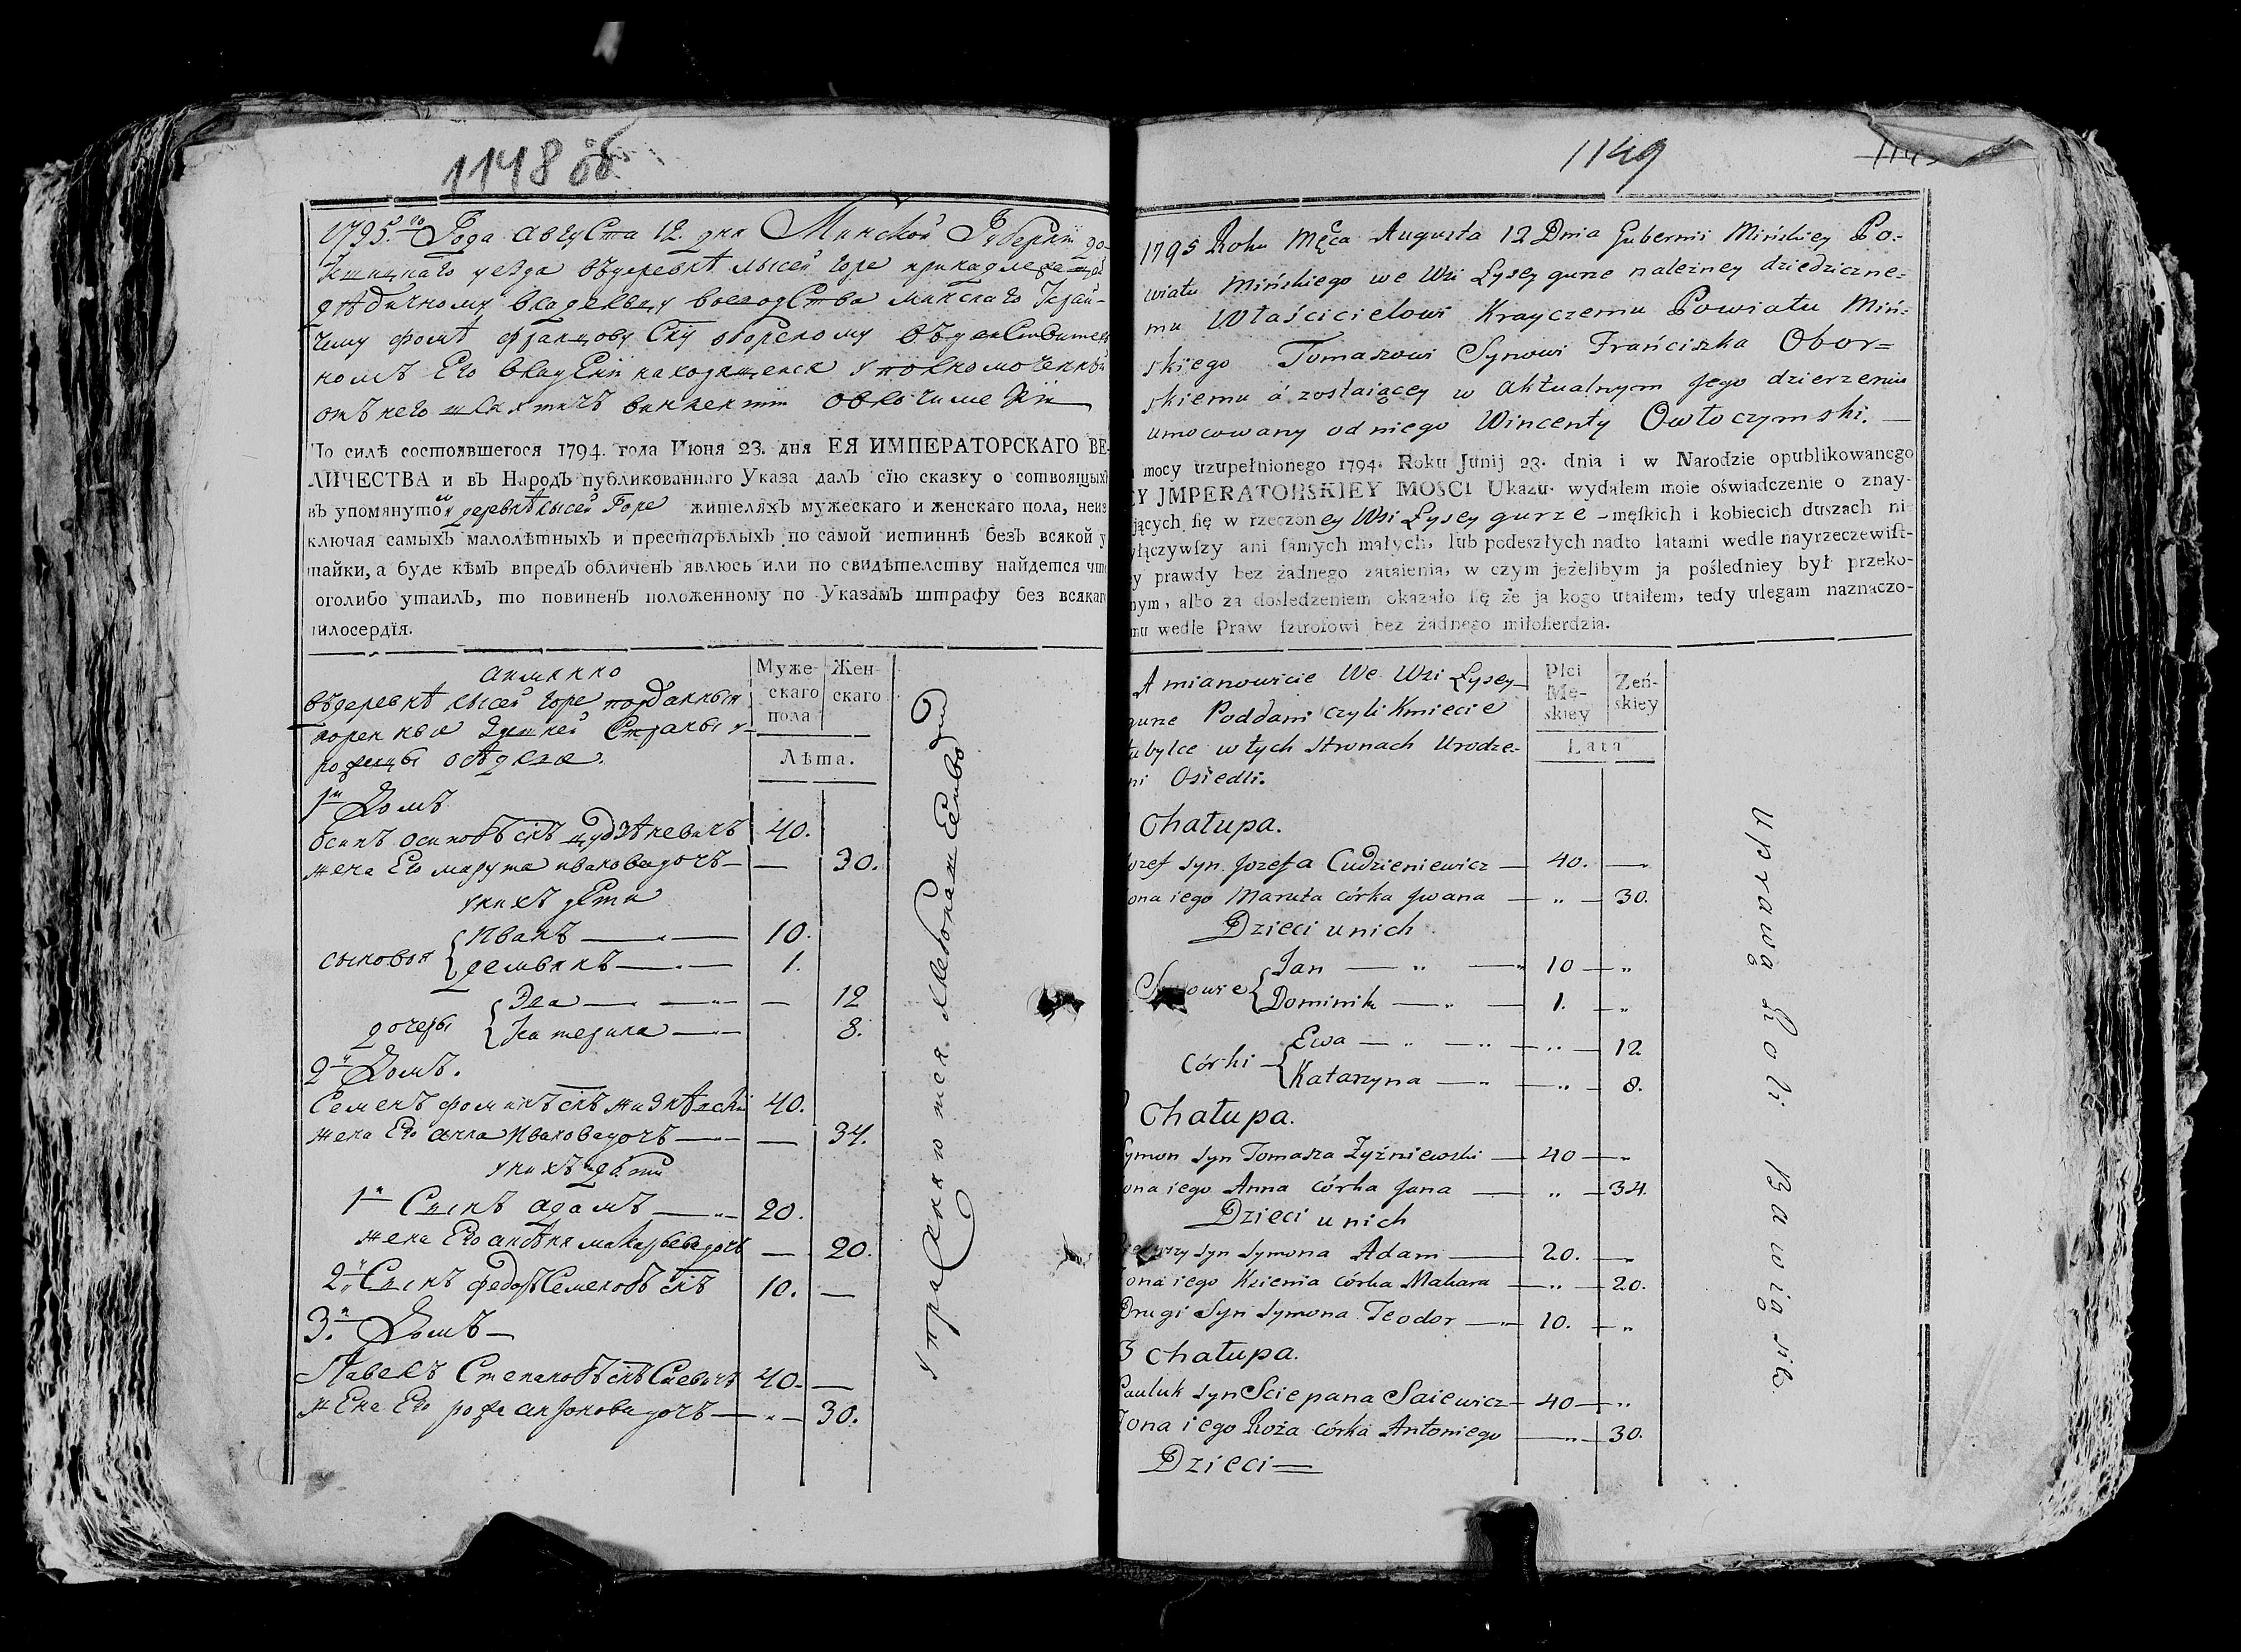 1148 об
1795го Года Августа 12. дня Минской Губернїи до-
уезда въ деревнѣ лысей горе принадлежащой
дѣдичному владельцу воеводства минского Край-
чему фомѣ францову Сну оборскому въ действитель
номъ Его владенїи находящейся Уполномоченный
отъ него шляхтичъ винцентий
По силѣ состоявшегося 1794. года Июня 23. дня ЕЯ ИМПЕРАТОРСКАГО ВЕ-
ЛИЧЕСТВА и въ Народъ публикованнаго Указа далъ сїю сказку о состоящихъ
въ упомянутой деревнѣ лысей Горе жителяхъ мужескаго и женскаго пола, неиз
ключая самыхъ малолѣтныхъ и престарѣлыхъ по самой истиннѣ безъ всякой у
тайки, а буде кѣмъ впредь обличенъ явлюсь или по свидѣтелству найдется что
оголибо утаилъ, то повиненъ положенному по Указамъ штрафу без всякаго
милосердїя.
аимянно
въ деревнѣ лысей горе подданныя
коренные здешней Страны у-
роженцы оседлые.
Муже-скаго пола
Жен-скаго
Лѣта.
1й Домъ
Осипъ осиповъ снъ цудзѣневичъ 40.
жена Его марута иванова дочь — — 30.
у нихъ дети
сыновья Иванъ — 10.
демьянъ — 1.
дочеры Эва — — 12
Катерина — 8.
2й Домъ.
Семенъ фоминъ снъ жизнѣвский 40.
жена Его анна Иванова дочь — — 34.
у нихъ дети
1й Сынъ адамъ — 20.
жена Его аксѣня макарьева дочь — 20.
2й Сынъ федоръ Семеновъ снъ 10. —
3й Домъ —
Павелъ Степановъ снъ Саевичъ 40. —
жена Его рожа антонова дочь — — 30.
упражняются хлебопашествомъ
1149
1795 Roku Męca Augusta 12 Dnia Gubernii Mińskiey Po-
wiatu Mińskiego we Wsi Łysey gurze należney dziedziczne-
mu Właścicielowi Krayczemu Powiatu Miń-
skiego Tomaszowi Synowi Franciszka Obor=
skiemu á zostaiącey w aktualnym Jego dzierzeniu
umocowany od niego Wincenty Owłoczymski. —
mocy uzupełnionego 1794. Roku Junij 23. dnia i w Narodzie opublikowanego
Y JMPERATORSKIEY MOSCI Ukazu. wydałem moie oświadczenie o znay-
jących się w rzeczoney Wsi Łysey gurze – męskich i kobiecich duszach ni
yłączywszy ani samych małych, lub podeszłych nadto latami wedle nayrzeczewist-
ey prawdy bez żadnego zataienia, w czym jeżelibym ja pośledniey był przeko-
nym, albo za dosledzeniem okazało się że ja kogo utaiłem, tedy ulegam naznaczo-
mu wedle Praw sztrofowi bez żadnego miłosierdzia.
A mianowicie We Wsi Łysey
gurze Poddani czyli Kmiecie
tubylce w tych stronach Urodze-
ni Osiedli.
Płci Mę-skiey
Żeń-skiey
Lata
Chałupa.
Jozef syn Jozefa Cudzieniewicz — 40. —
ona iego Maruta córka Jwana — „ — 30.
Dzieci unich
Synowie Jan — „ — 10 — „
Dominik — „ — 1. — „
Córki Ewa — „ — „ — 12
Katarzyna — „ — „ — 8.
Chałupa.
Symon syn Tomasza Żyźniewski — 40 — „
ona iego Anna córka Jana — „ — 34.
Dzieci u nich
Pierwszy syn Symona Adam — 20. — „
ona iego Kzienia córka Makara — „ — 20.
Drugi Syn Symona Teodor — 10. — „
3 Chałupa.
Pauluk syn Sciepana Saiewicz — 40 — „
Żona iego Roża córka Antoniego — „ — 30.
Dzieci =
Uprawą Roli Bawią się.